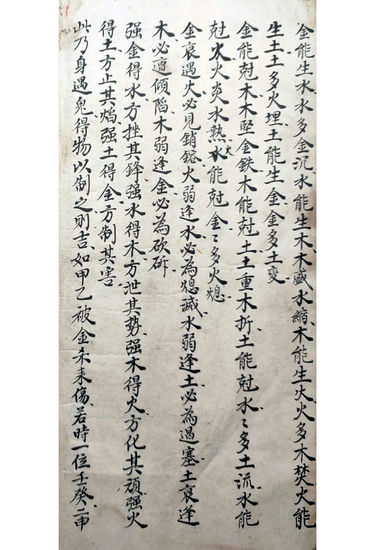 金能生水水多金沉水能生木木盛水縮木能生火火多木焚火能
生土土多火埋土能生金金多土变
金能尅木木堅金鉄木能尅土土重木折土能尅水〻多土流水能
尅火火炎水熱水火能尅金〻多火熄
金哀遇火必見銷鎔火弱逢水必為熄滅水弱逢土必為遏塞土哀逢
木必遭傾陷木弱逢金必為砍斫
强金得水方挫其鋒强水得木方泄其勢强木得火方化其頑强火
得土方止其焰强土得金方制其害
此乃身遇鬼得物以制之則吉如甲乙被金杀来傷若時一位壬癸二申